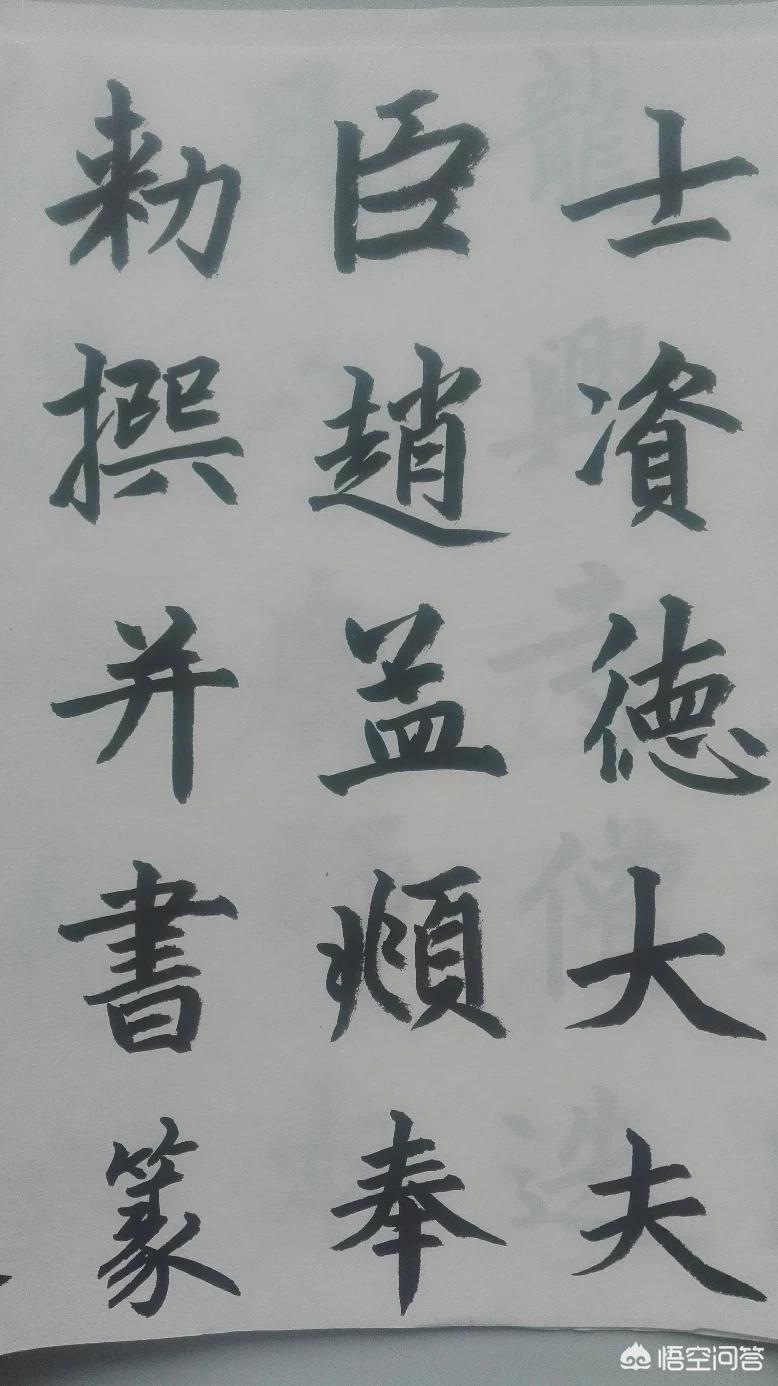 士資德大夫
臣趙孟頫奉
勑撰并書篆
悟空问答